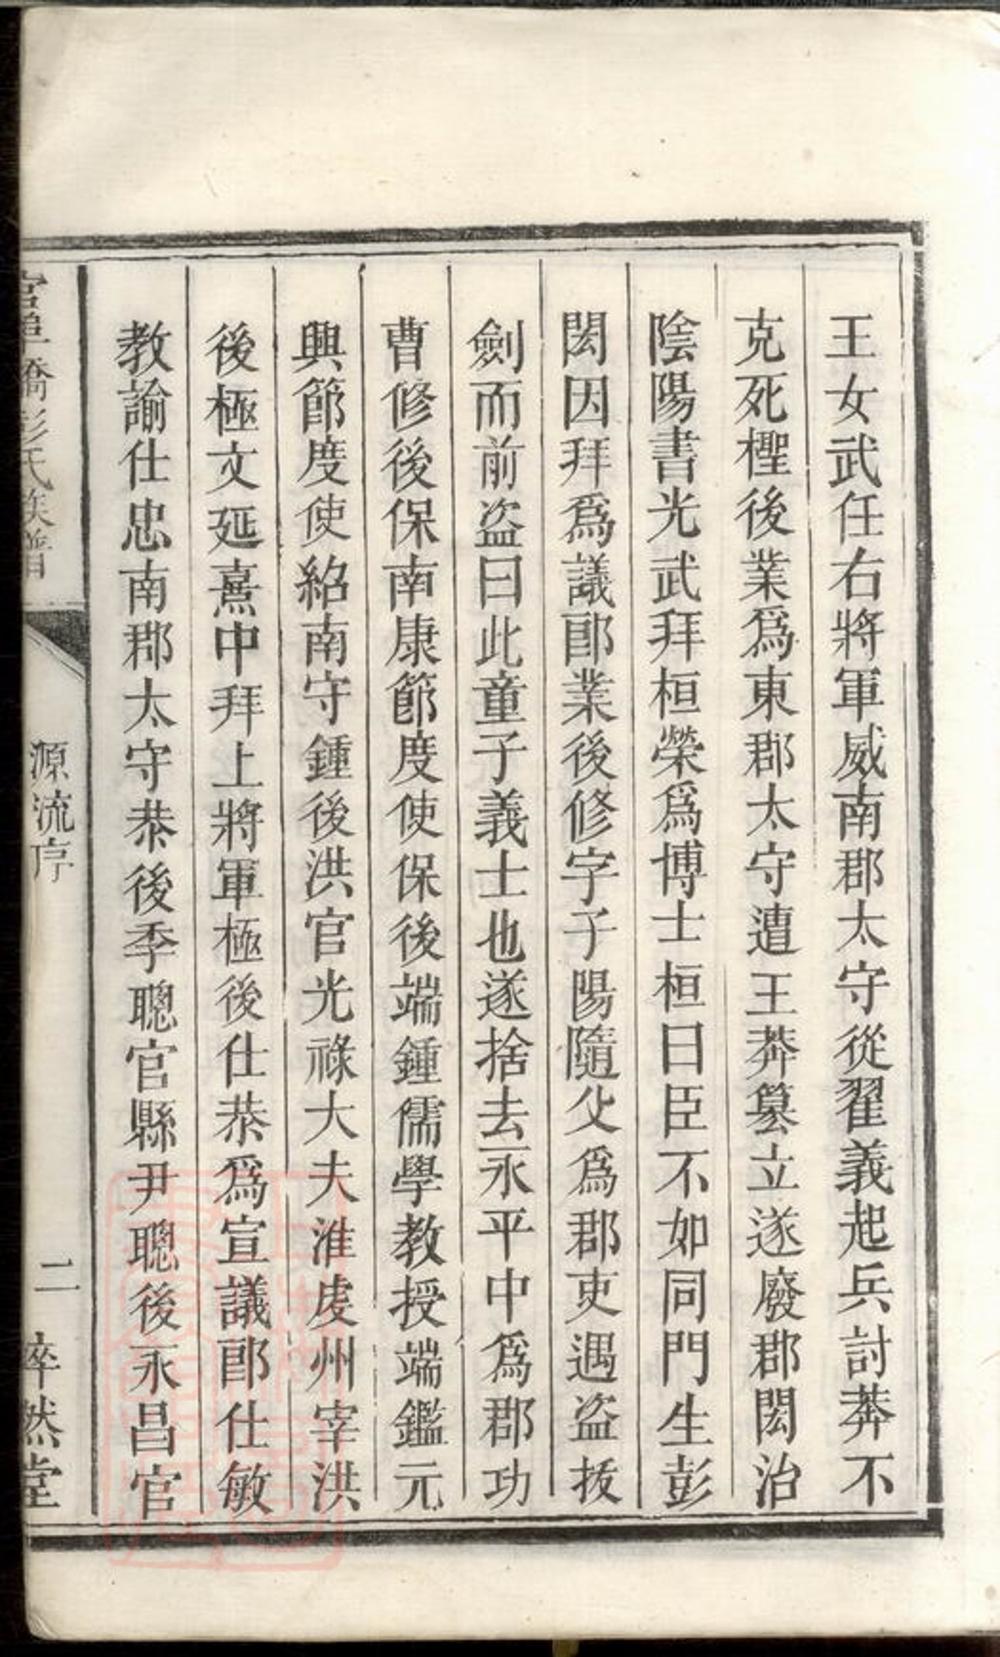 王女武任右將軍威南郡太守從翟義起兵討莽不
克死樫後業爲東郡太守遭王莽篡立遂廢郡閎治
陰陽書光武拜桓榮爲博士桓曰臣不如同門生彭
閎因拜爲議郎業後修字子陽隨父爲郡吏遇盜拔
劍而前盜曰此童子義士也遂捨去永平中爲郡功
曹修後保南康節度使保後端鍾儒學教授端鑑元
興節度使紹南守鍾後洪官光祿大夫淮虔州宰洪
後極文延熹中拜上將軍極後仕恭爲宣議郎仕敏
教諭仕忠南郡太守恭後季聰官縣尹聰後永昌官
橋彭氏族譜
源流序
二
萃然堂